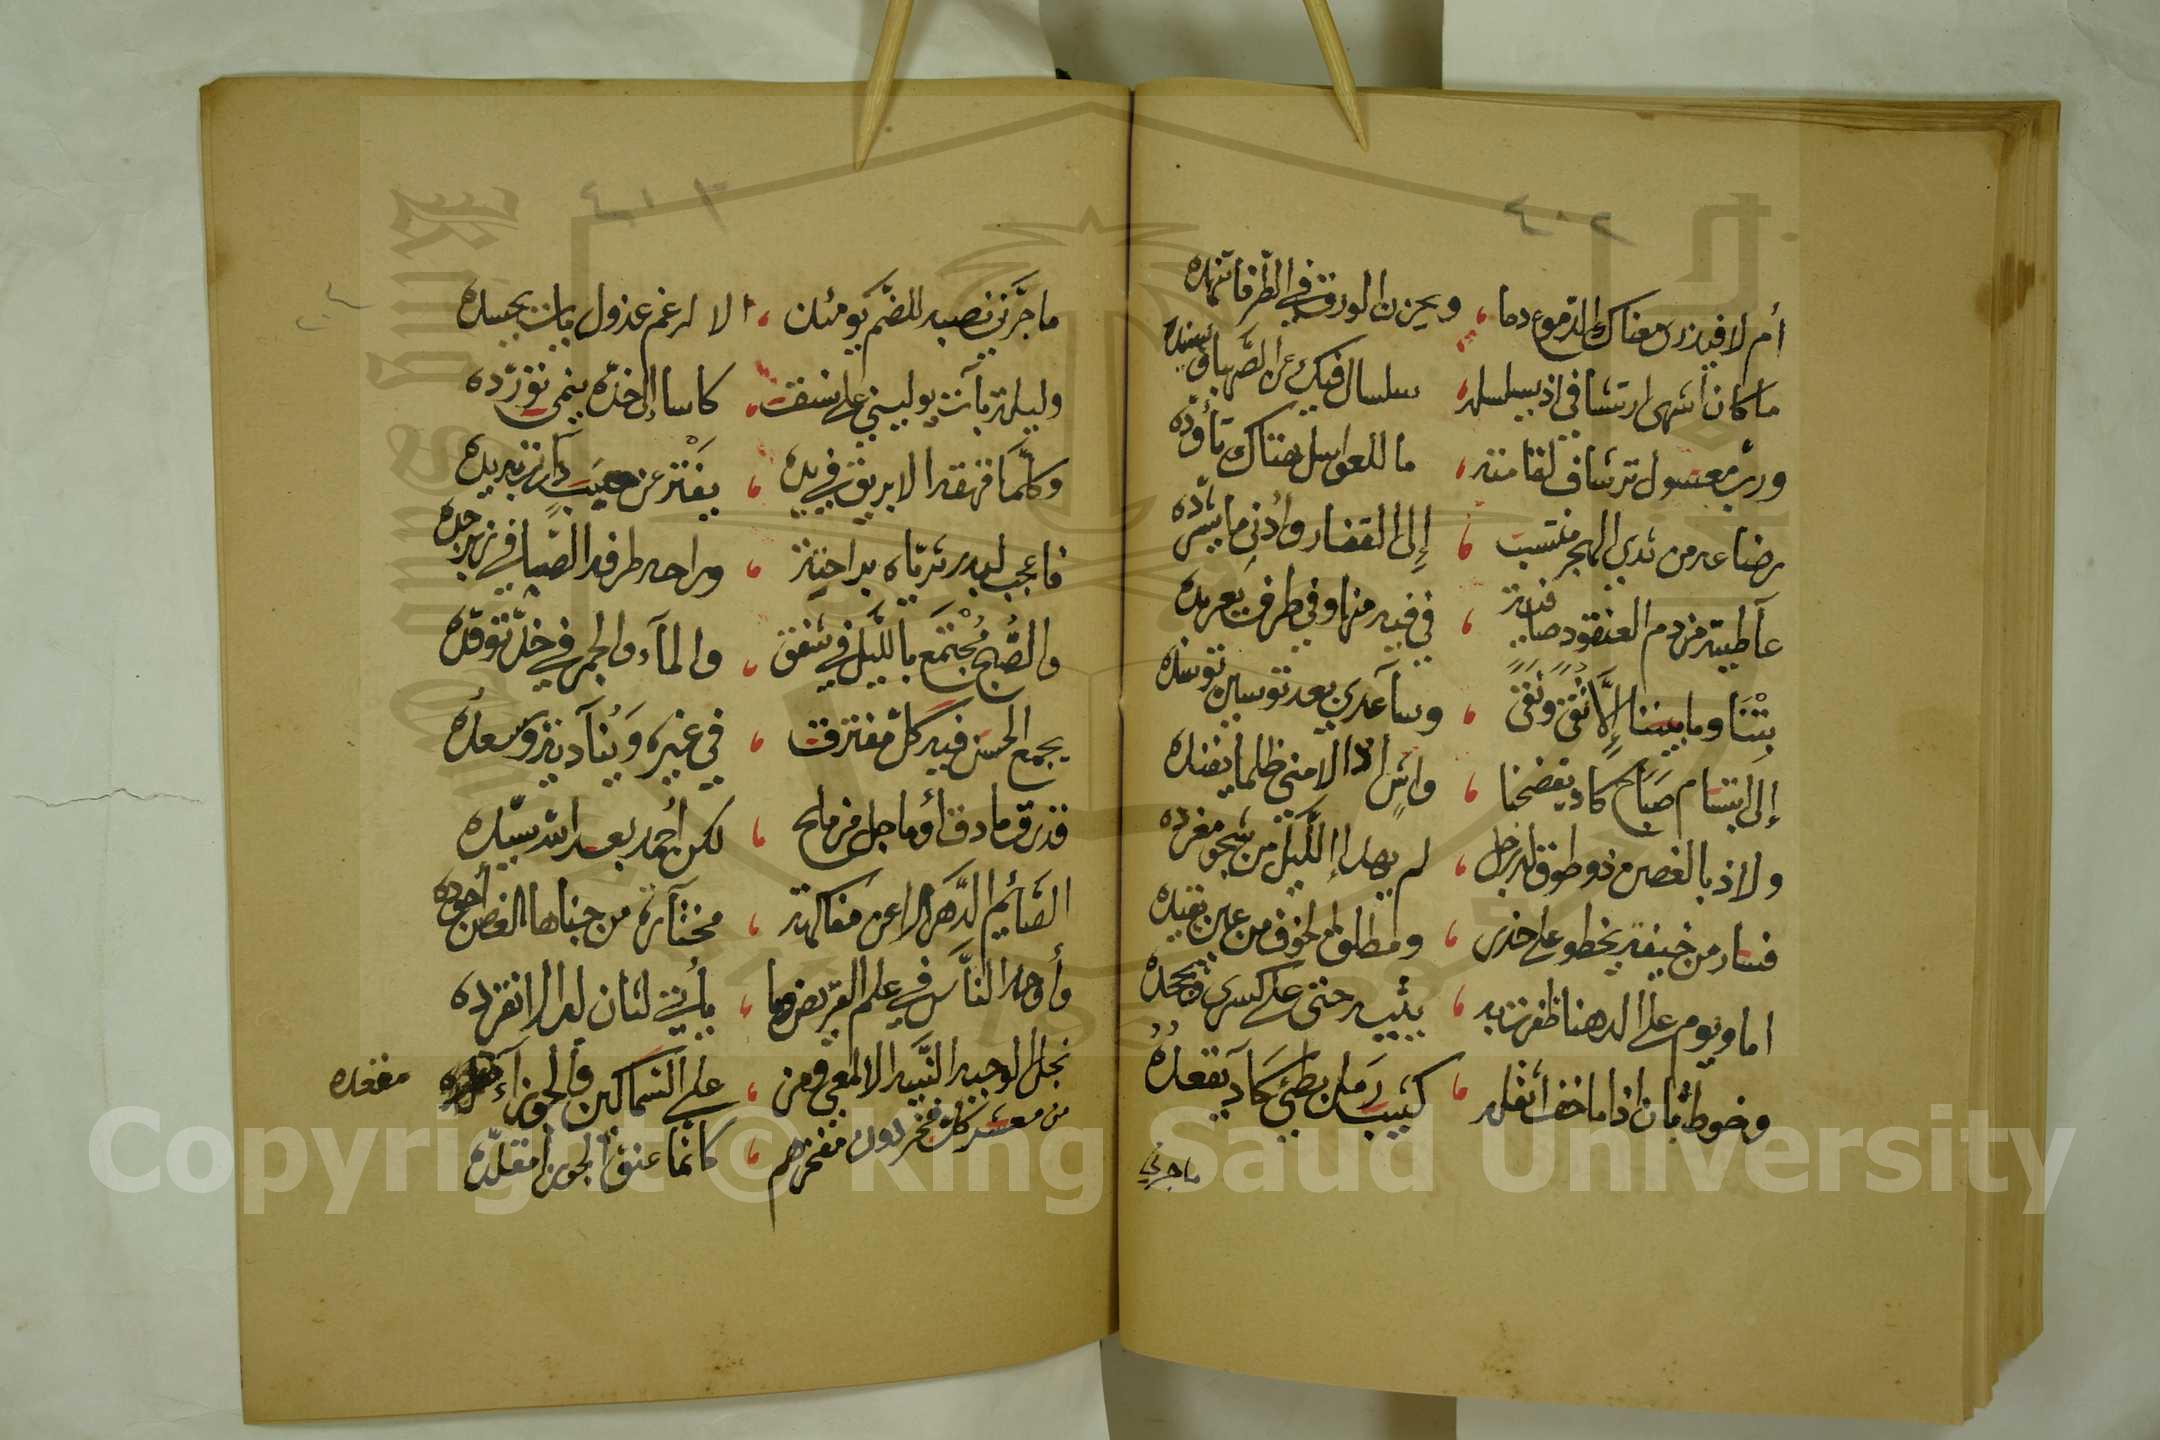 ٤٠٢
أم لا فيذري معناك الدموع دما ، ويحزن الورق في الظرفا تنهده
ما كان أشهى ارتشافي اذ يسلسله ، سلسال فيك عن الصهباء يسنده
ورب معسول ترشاف لقامته ، ما للعواسل هتاك تأوده
رضاعه من ثدي الهجر منتسب ، إلى القفار وأدنى ما يشرده
عآطيته من دم العنقود صافية ، في فيه منها وفي طرف يعربده
بتنا وما بيننا إلا تقى ونقى ، وسآعدي بعد توسين توسده
إلى ابتسام صباح كاد يفضحنا ، واش اذا لامني ظلما يفنده
ولاذ بالغصن ذو طوق له زجل ، لم يهدا الليل من شجو مغرده
فسار من خيفة يخطو على حذر ، ومطلق الخوف من عين يقيده
اما ويوم على الدهنا ظفرت به ، يتيه حتى على كسرى ويجحده
وخوط بان اذا ما خف أثقله ، كثيب رمل بطئ كاد يقعده
ما جرني
٤٠٣
ما جرني نصبه للضم يومئذ ، الا لرغم عذول بات يحسده
وليلة بآت يوليني على نسق ، كاسا إلى خده ينمى توزده
وكلما قهقه الابريق في يده ، يفتر عن حبب دآر تبديده
فاعجب لبدر ثرياه براحته ، وراحه طرفه الصباني زبرجده
والصبح مجتمع بالليل في شفق ، والمآء والجمر في خد توقده
يجمع الحسن فيه كل مفترق ، في غيره ويناديني وسعده
فذرق ما دق أو ما جل من ملح ، لكن أحمد بعد الله سيده
الصائم الدهر الا عن مفاكهة ، مختآرة من جناها الغصن أجوده
وأوحد الناس في علم القريض وما ، يأتي لثان له الا تفرده
نجل الوجيه النبيه الالمعي ومن ، على السماكين والجوزآء مقعده
من معشر كل فخر دون مفخرهم ، كانما عنق الجوزا مقلده
Copyright © King Saud University